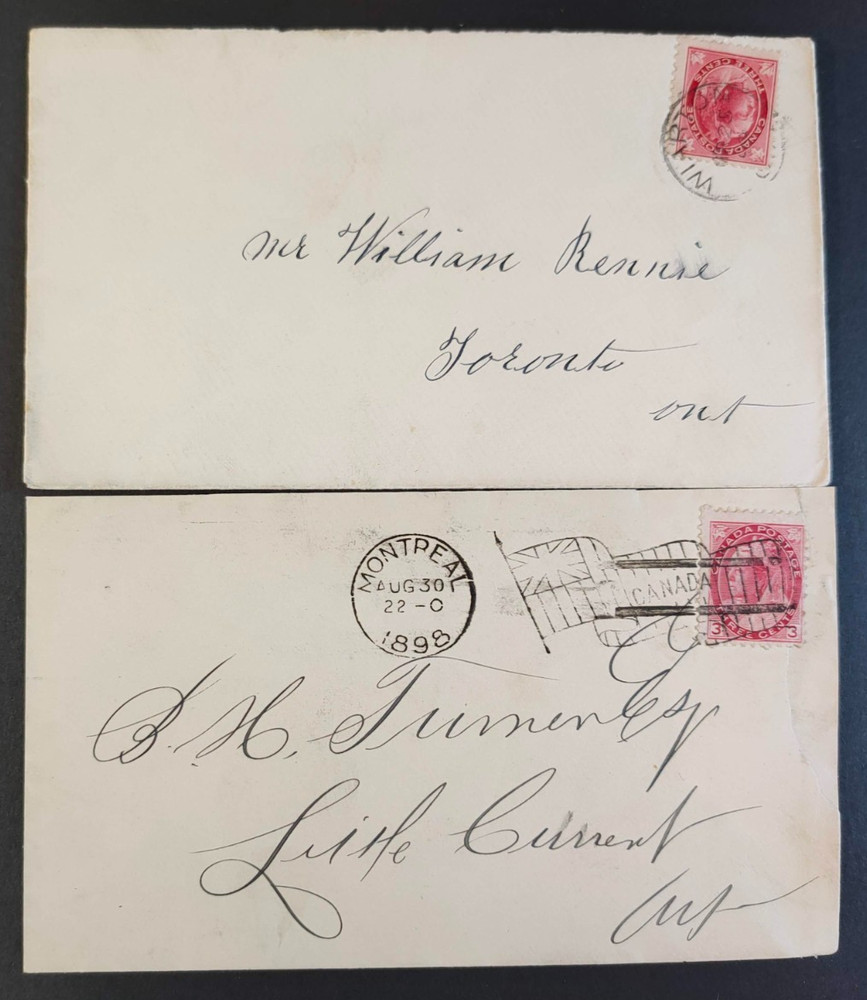 THREE CENTS
CANADA POSTAGE
WIAR
Mr William Rennie
Toronto
ont
MONTREAL
AUG 30
22-0
1898
CANADA
CANADA POSTAGE
THREE CENTS
3 3
B. H. Turner Esq
Little Current
Ont